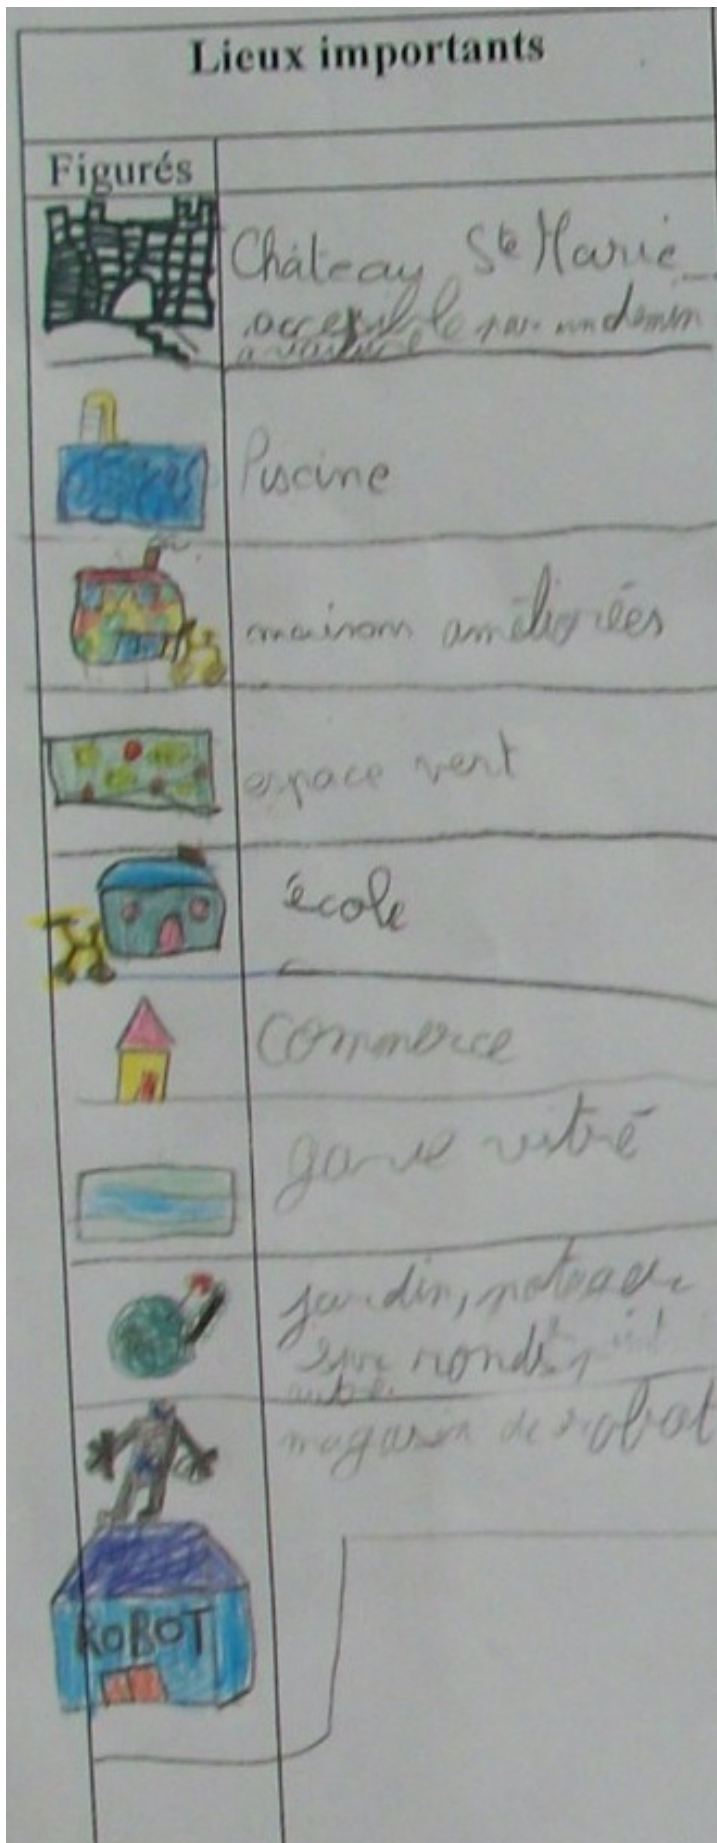 Lieux importants
Figurés
Château Ste Marie
accessible par un chemin
a voiture
Piscine
maisons améliorées
espace vert
école
Commerce
gare vitré
jardin,
ronds
magasin de robot
ROBOT